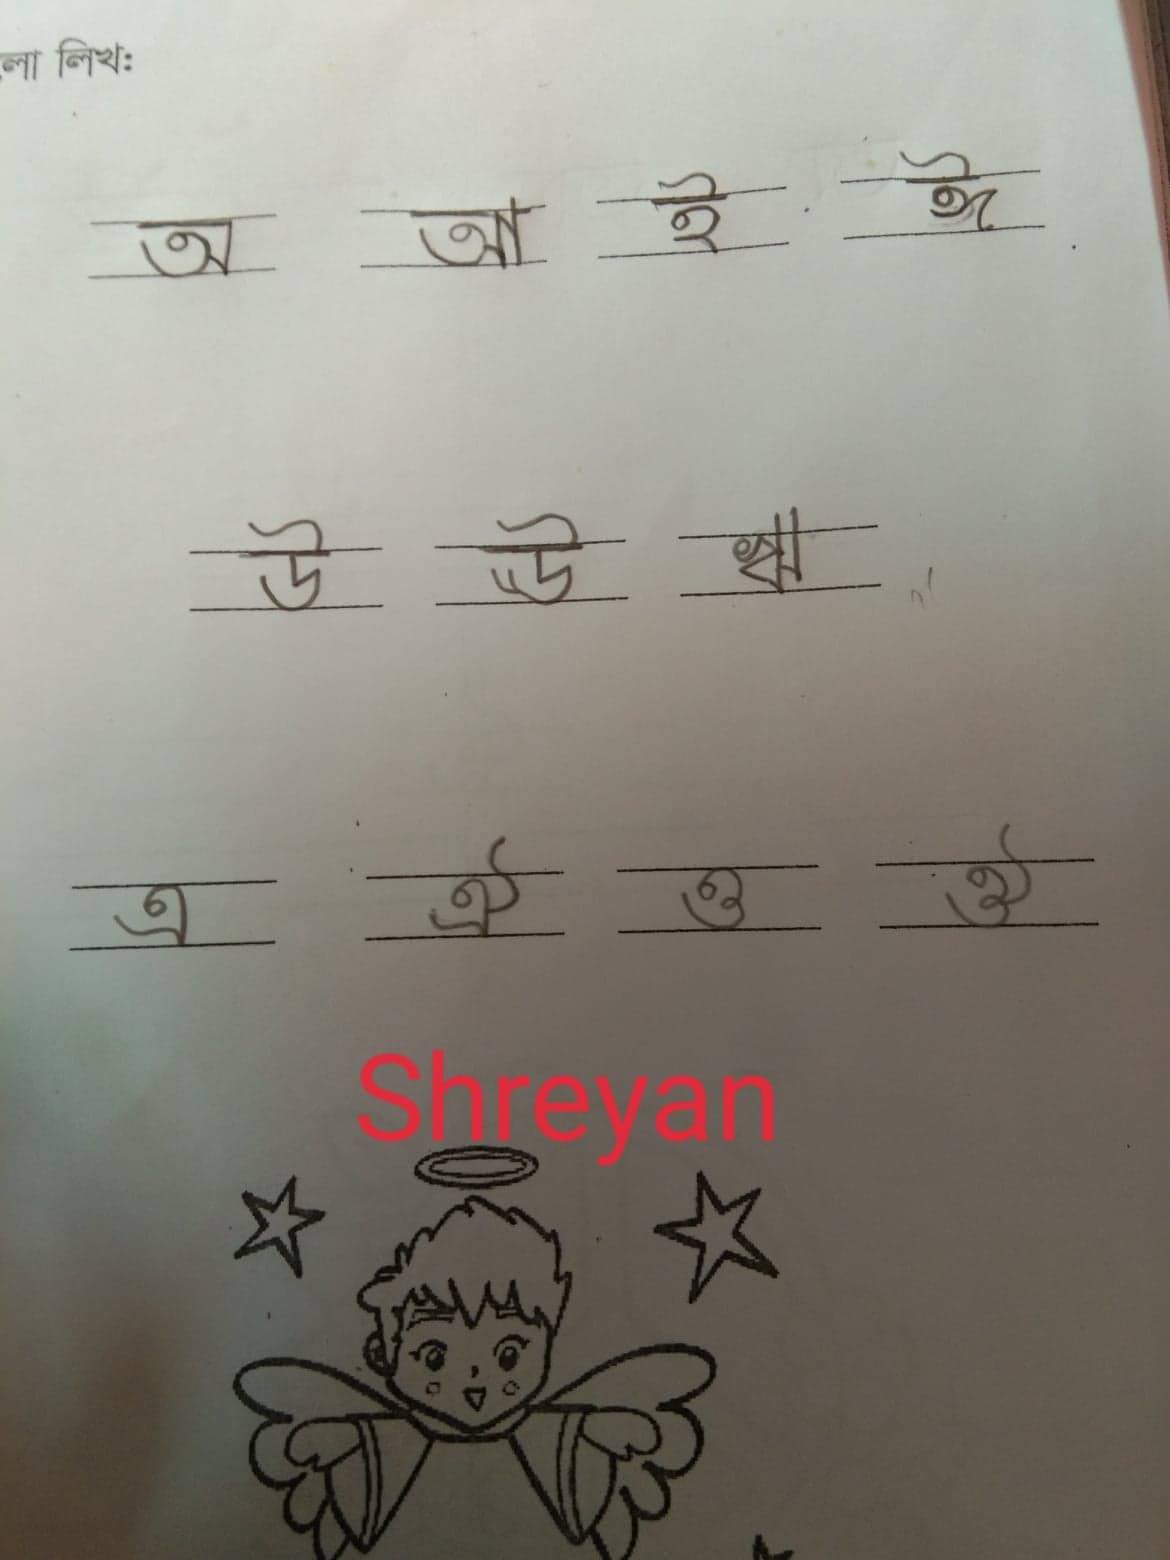 লো লিখ:
অ আ ই ঈ
উ ঊ ঋ
এ ঐ ও ঔ
Shreyan